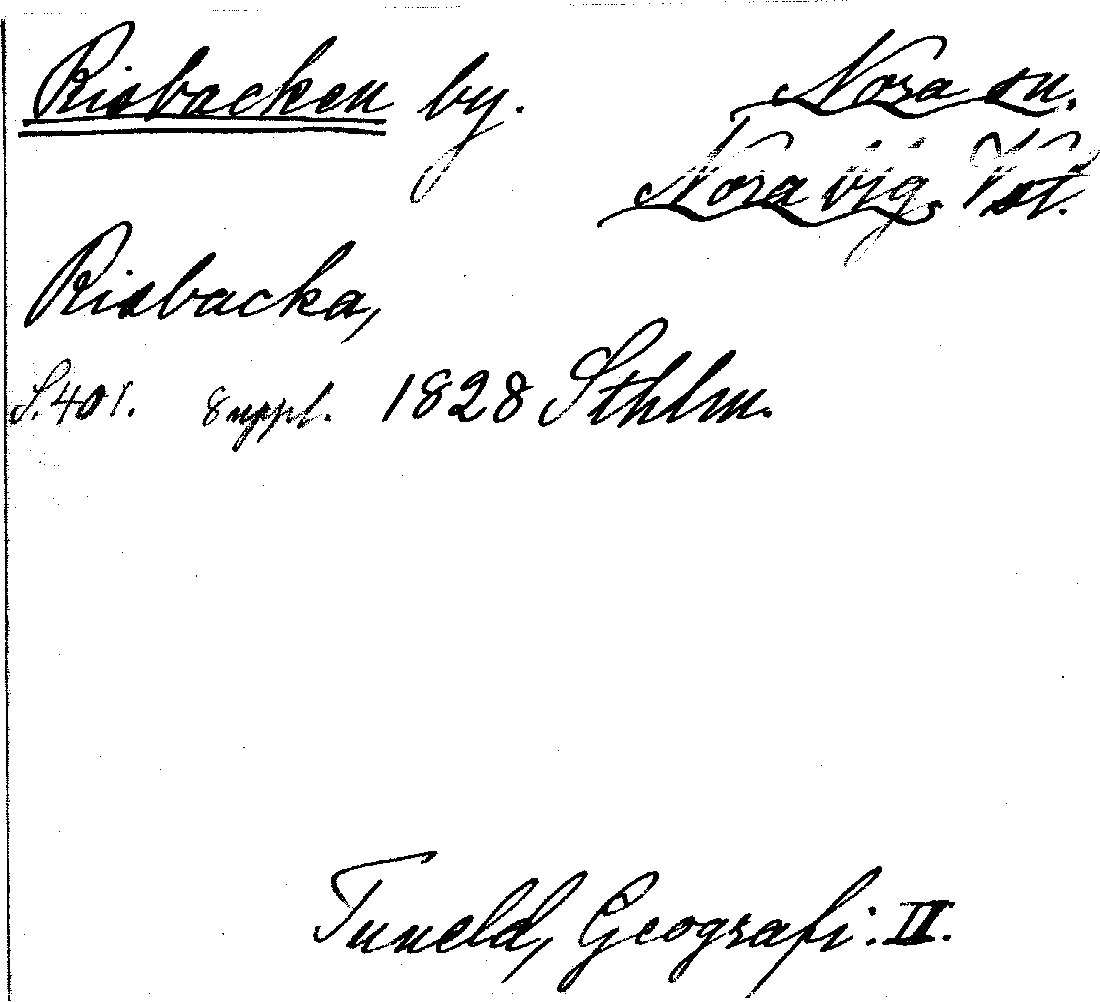 Risbacken by. Nora sn.
Nora bjg. Vst.
Risbacka,
S. 401. Suppl. 1828 Sthlm.
Tuneld, Geografi: II.